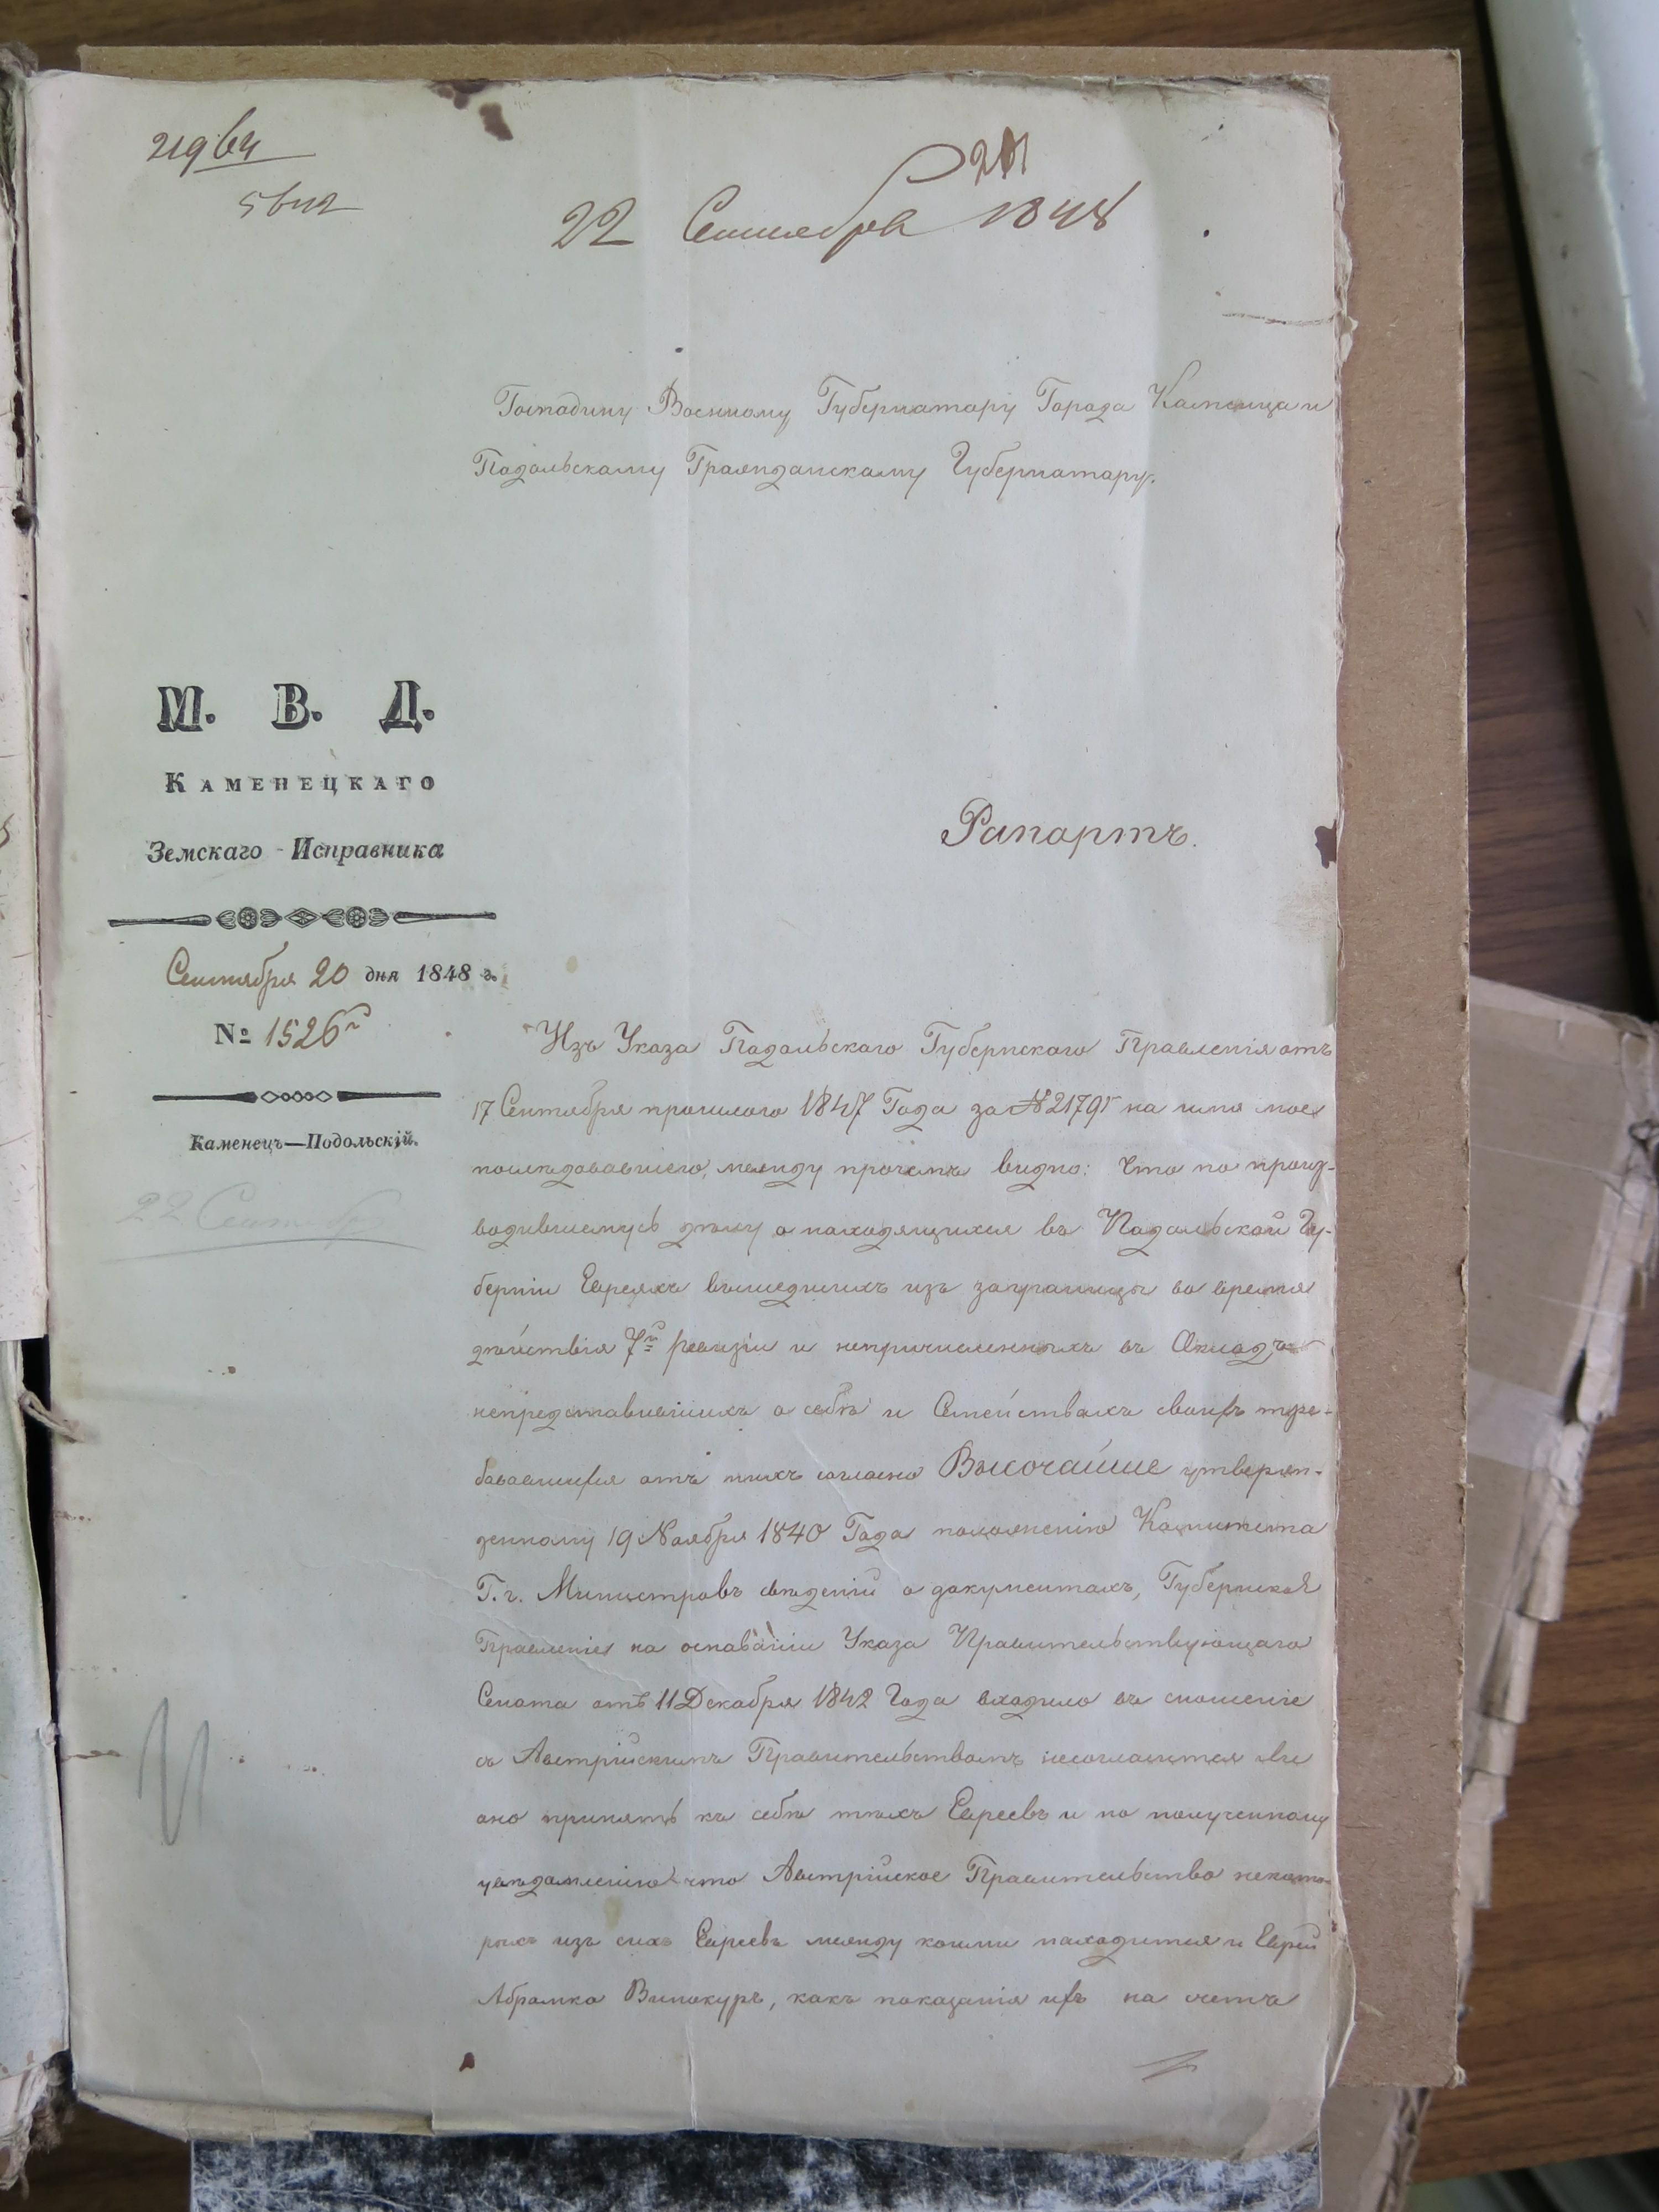 22 Сентября 1848
Господину Военному Губернатору Города Каменца и
Подольскому Гражданскому Губернатору.
М. В. Д.
Каменецкаго
Земскаго Исправника
Сентября 20 дня 1848 г.
№ 1526
Каменецъ—Подольскій.
22 Сентября
Рапортъ.
Изъ Указа Подольскаго Губернскаго Правленія отъ
17 Сентября прошлого 1847 Года за № 21795 на имя мое
последовавшего, между прочемъ видно: что по произ-
водившемусь дѣлу о находящихся въ Подольской Гу-
берніи Евреяхъ вышедшихъ изъ заграницы во время
дѣйствія 7й ревизіи и непричисленныхъ въ Окладъ
непредставившихъ о себѣ и Семействахъ своихъ тре-
бовавшихся отъ нихъ согласно Высочайше утверж-
денному 19 Ноября 1840 Года положенію Комитета
Г. г. Министровъ свѣденій о документахъ, Губернское
Правленіе на основаніи Указа Правительствующаго
Сената отъ 11 Декабря 1842 Года входило въ сношеніе
съ Австрійскимъ Правительствомъ несогласится ли
оно принять къ себѣ тѣхъ Евреевъ и по полученному
увѣдомленію что Австрійское Правительство некото-
рыхъ изъ сихъ Евреевъ между коими находится и Еврей
Абрамко Винокуръ, какъ показанія ихъ на счетъ